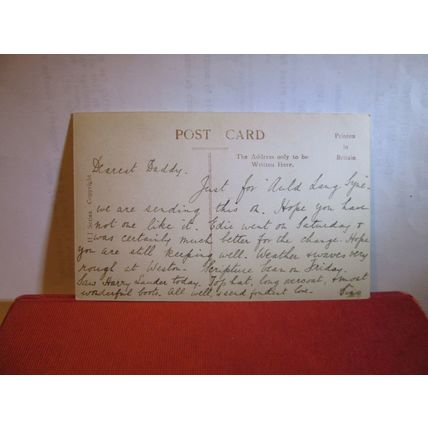 POST CARD
Printed
in
Britain.
The Address only to be
Written Here.
H J Series Copyright.
Dearest Daddy.
Just for "Auld Lang Syne"
we are sending this on. Hope you have
not one like it. Edie went on Saturday &
was certainly much better for the change. Hope
you are still keeping well. Weather & waves very
rough at Weston. Scripture Exam on Friday.
Saw Harry Lauder today. Top hat, long overcoat, & most
wonderful boots. All well, & send fondest love.